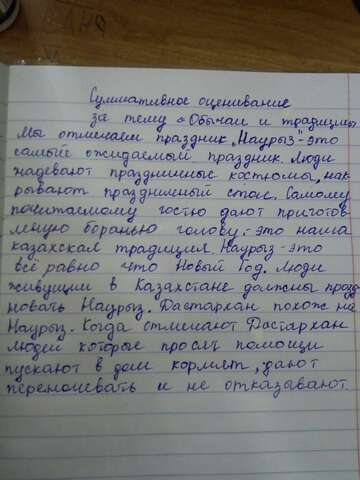 Суммативное оценивание
за тему „Обычаи и традиции"
Мы отмечаем праздник „Наурыз"-это
самый ожидаемый праздник. Люди
надевают праздничные костюмы, нак-
рывают праздничный стол. Самому
почитаемому гостю дают приготов-
лмную боранью голову.-это наша
казахская традиция. Наурыз-это
всё равно что Новый Год. Люди
живущии в Казахстане должны празд
новать Наурыз. Дастархан похож на
Наурыз. Когда отмечают Дастархан
людей которые просят помощи
пускают в дом кормят, дают
переночевать и не отказывают